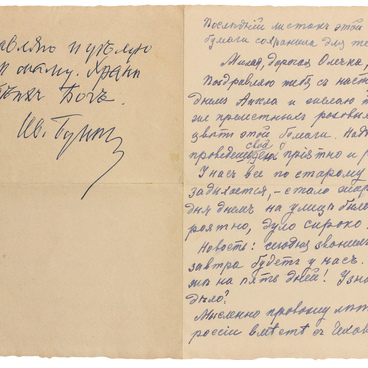 вляю и целую
Бог.
Ив. Бунин
Последний листок этой
бумаги сохранила для те
Милая, дорогая Олечка,
Поздравляю тебя с наст
днем Ангела и желаю т
же прелестных розовы
цвет этой бумаги. Над
проведешь свой день приятно и
У нас все по старому
задыхается, – стало жар
дня днем на улице было
роятно, дуло сироко.
Новость: сегодня звонил
завтра будет у нас.
на пять дней! Узна
было?
Мысленно провожу
россии вместе с Чехов